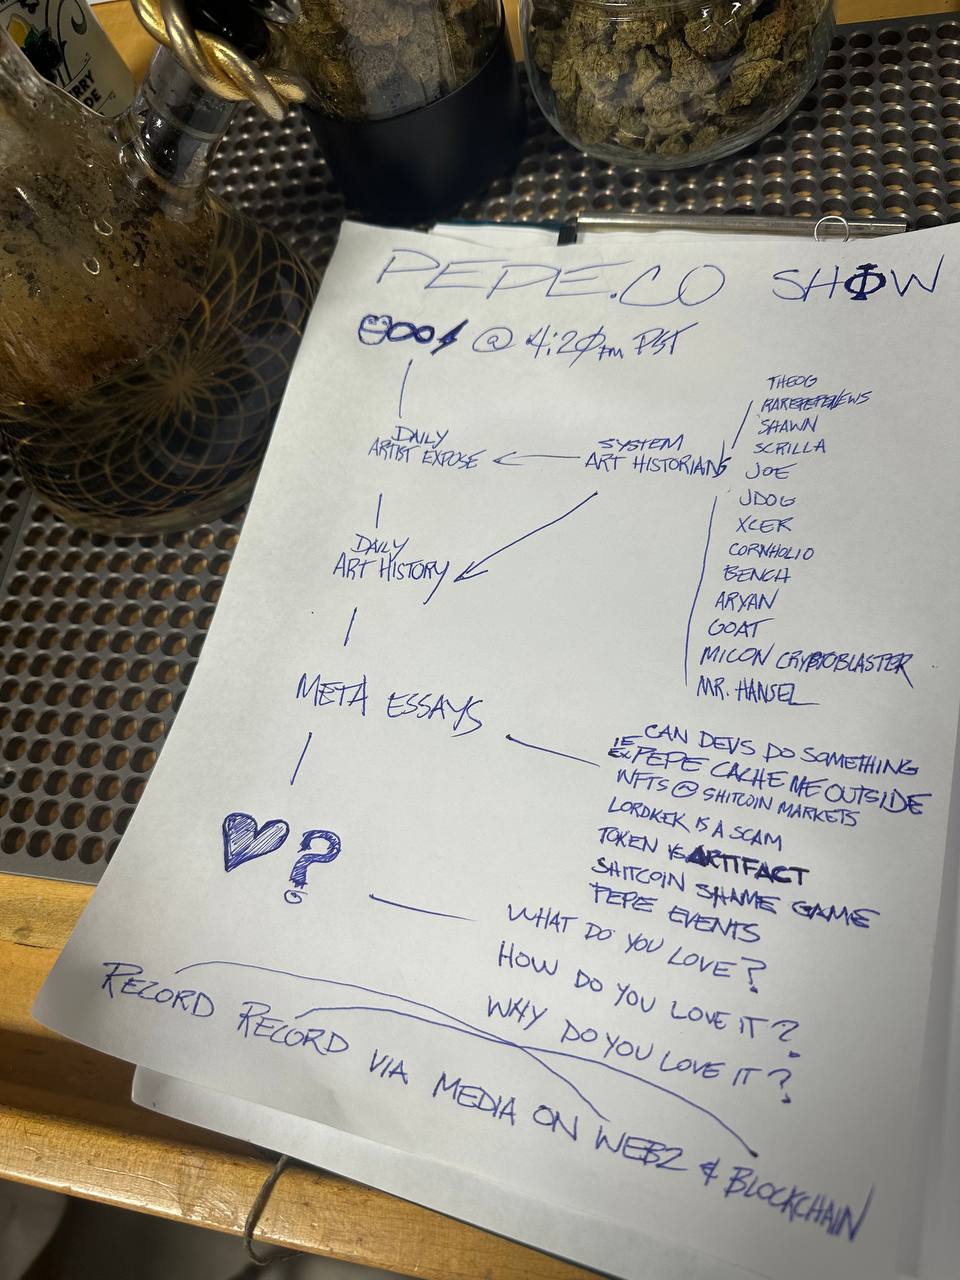 PEPE.CO SHΦW
∞⚡ @ 4:20 PM PST
DAILY
ARTIST EXPOSE
SYSTEM
ART HISTORIANS
THEOG
RAREPEPENEWS
SHAWN
SCRILLA
JOE
JDOG
XCER
CORNHOLIO
BENCH
ARYAN
GOAT
MICON CRYPTOBLASTER
MR. HANSEL
DAILY
ART HISTORY
META ESSAYS
IE CAN DEVS DO SOMETHING
EX PEPE CACHE ME OUTSIDE
NFTS @ SHITCOIN MARKETS
LORDKEK IS A SCAM
TOKEN IS ARTIFACT
SHITCOIN SHAME GAME
PEPE EVENTS
♥?
WHAT DO YOU LOVE?
HOW DO YOU LOVE IT?
WHY DO YOU LOVE IT?
RECORD RECORD VIA MEDIA ON WEB2 & BLOCKCHAIN